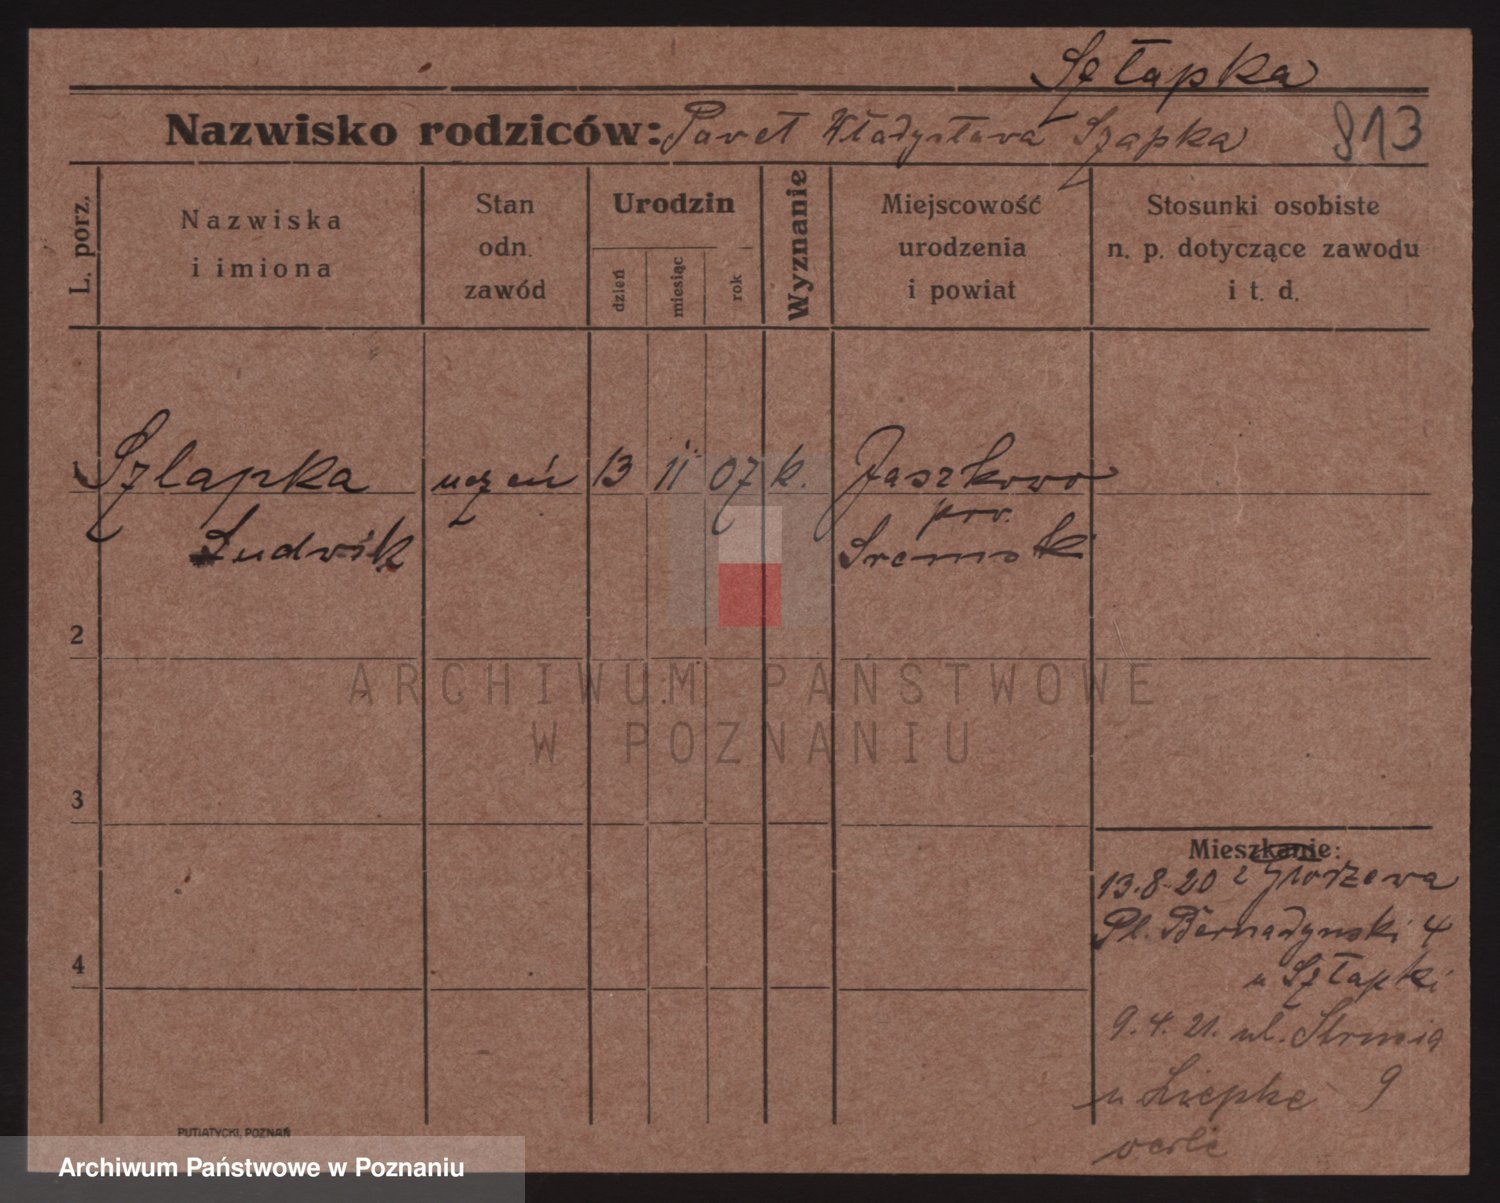 Szłapka
Nazwisko rodziców: Paweł Władysława Szapka 813
L. porz.
Nazwiska
i imiona
Stan
odn.
zawód
Urodzin
dzień
miesiąc
rok
Wyznanie
Miejscowość
urodzenia
i powiat
Stosunki osobiste
n. p. dotyczące zawodu
i t. d.
Szlapka uczeń 13 11 07 k. Jaszkowo
pow.
Ludwik Sremski
2
3
4
Mieszkanie:
13.8.20 z
Pl. Bernadynski 4
u Szłapki
9.4.21. ul. Strumia
u 9
ARCHIWUM PAŃSTWOWE
W POZNANIU
PUTIATYCKI, POZNAŃ
Archiwum Państwowe w Poznaniu